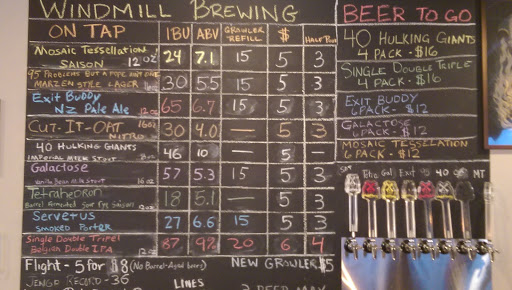 WINDMILL BREWING
ON TAP IBU ABV GROWLER REFILL $ HALF POUR
MOSAIC TESSELLATION SAISON 12oz 24 7.1 15 5 3
95 PROBLEMS BUT A PIPE AINT ONE MARZEN STYLE LAGER 30 5.5 15 5 3
EXIT BUDDY NZ PALE ALE 12oz 65 6.7 15 5 3
CUT-IT-OAT NITRO 16oz 30 4.0 — 5 3
40 HULKING GIANTS IMPERIAL MILK STOUT 8oz 46 10 5 —
GALACTOSE Vanilla Bean Milk Stout 16oz 57 5.3 15 5 3
Tetrahedron Barrel Fermented Sour Rye Saison 18 5.1 5 3
SERVETUS SMOKED PORTER 27 6.6 15 5 3
Single Double Tripel Belgian Double IPA 12oz 87 9% 20 6 4
Flight - 5 for $8 (No Barrel-Aged beers) NEW GROWLER $5
LINES
BEER TO GO
40 HULKING GIANTS
4 PACK - $16
SINGLE DOUBLE TRIPLE
4 PACK - $16
EXIT BUDDY
6 PACK - $12
GALACTOSE
6 PACK - $12
MOSAIC TESSELLATION
6 PACK - $12
Gal Exit 40 MT